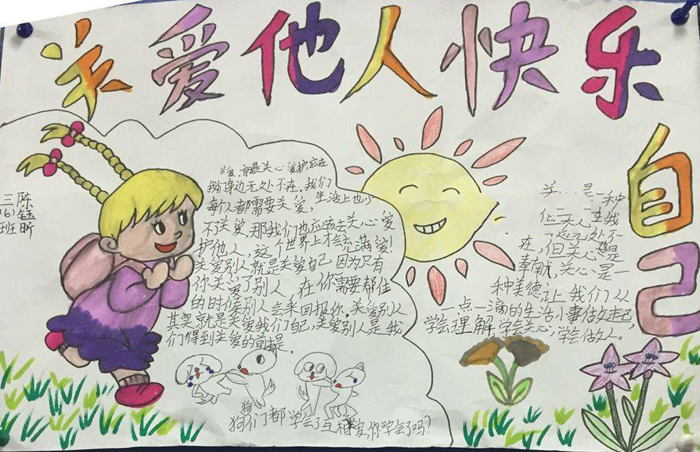 关爱他人快乐
自己
三(6)班
陈钰昕
关爱,就是关心爱护它在
我们身边无处不在,我们
每个人都需要关爱,生活上也少
不了关爱,那我们也应该去关心爱
护他人,这个世界上才会充满爱!
关爱别人就是关爱自己,因为只有
你关爱了别人,在你需要帮住
的时候别人会来回报你,关爱别人
其实就是关爱我们自己,关爱别人是我
们得到关爱的前提。
狗
狗们都学会了互相爱,你学会了吗?
是一种
在,但关心是
幸福,关心是一
种美德,让我们从
一点一滴的生活小事做起
学会理解学会关心,学会做人。